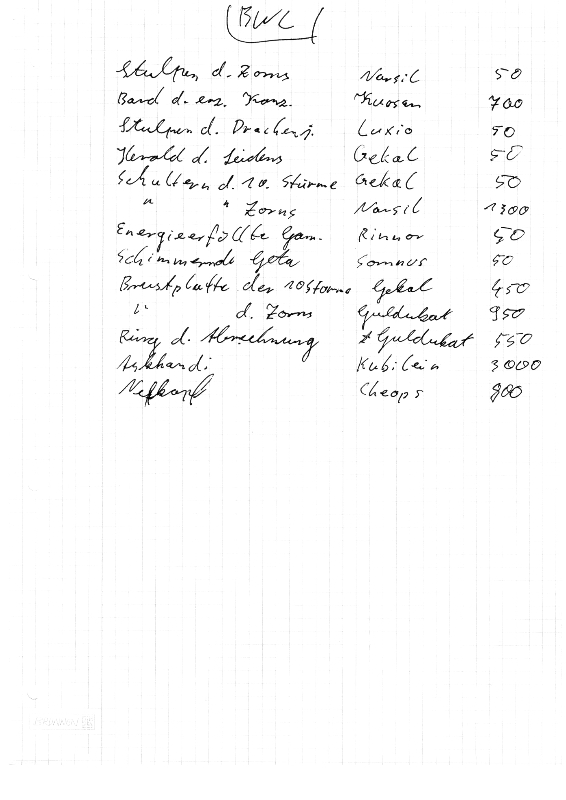 BWL
Stulpen d. Zorns Narsil 50
Band d. enz. Konz. Kuosan 700
Stulpen d. Drachenj. Luxio 50
Herold d. Leidens Gekal 50
Schultern d. 10. Stürme Gekal 50
" " Zorns Narsil 1300
Energieerfüllte Gam. Rinnor 50
Schimmernde Geta Somnus 50
Brustplatte der 10 Stürme Gekal 450
" d. Zorns Guldukat 950
Ring d. Abrechnung Guldukat 550
Ashkandi Kubilein 3000
Nefkopf Cheops 900